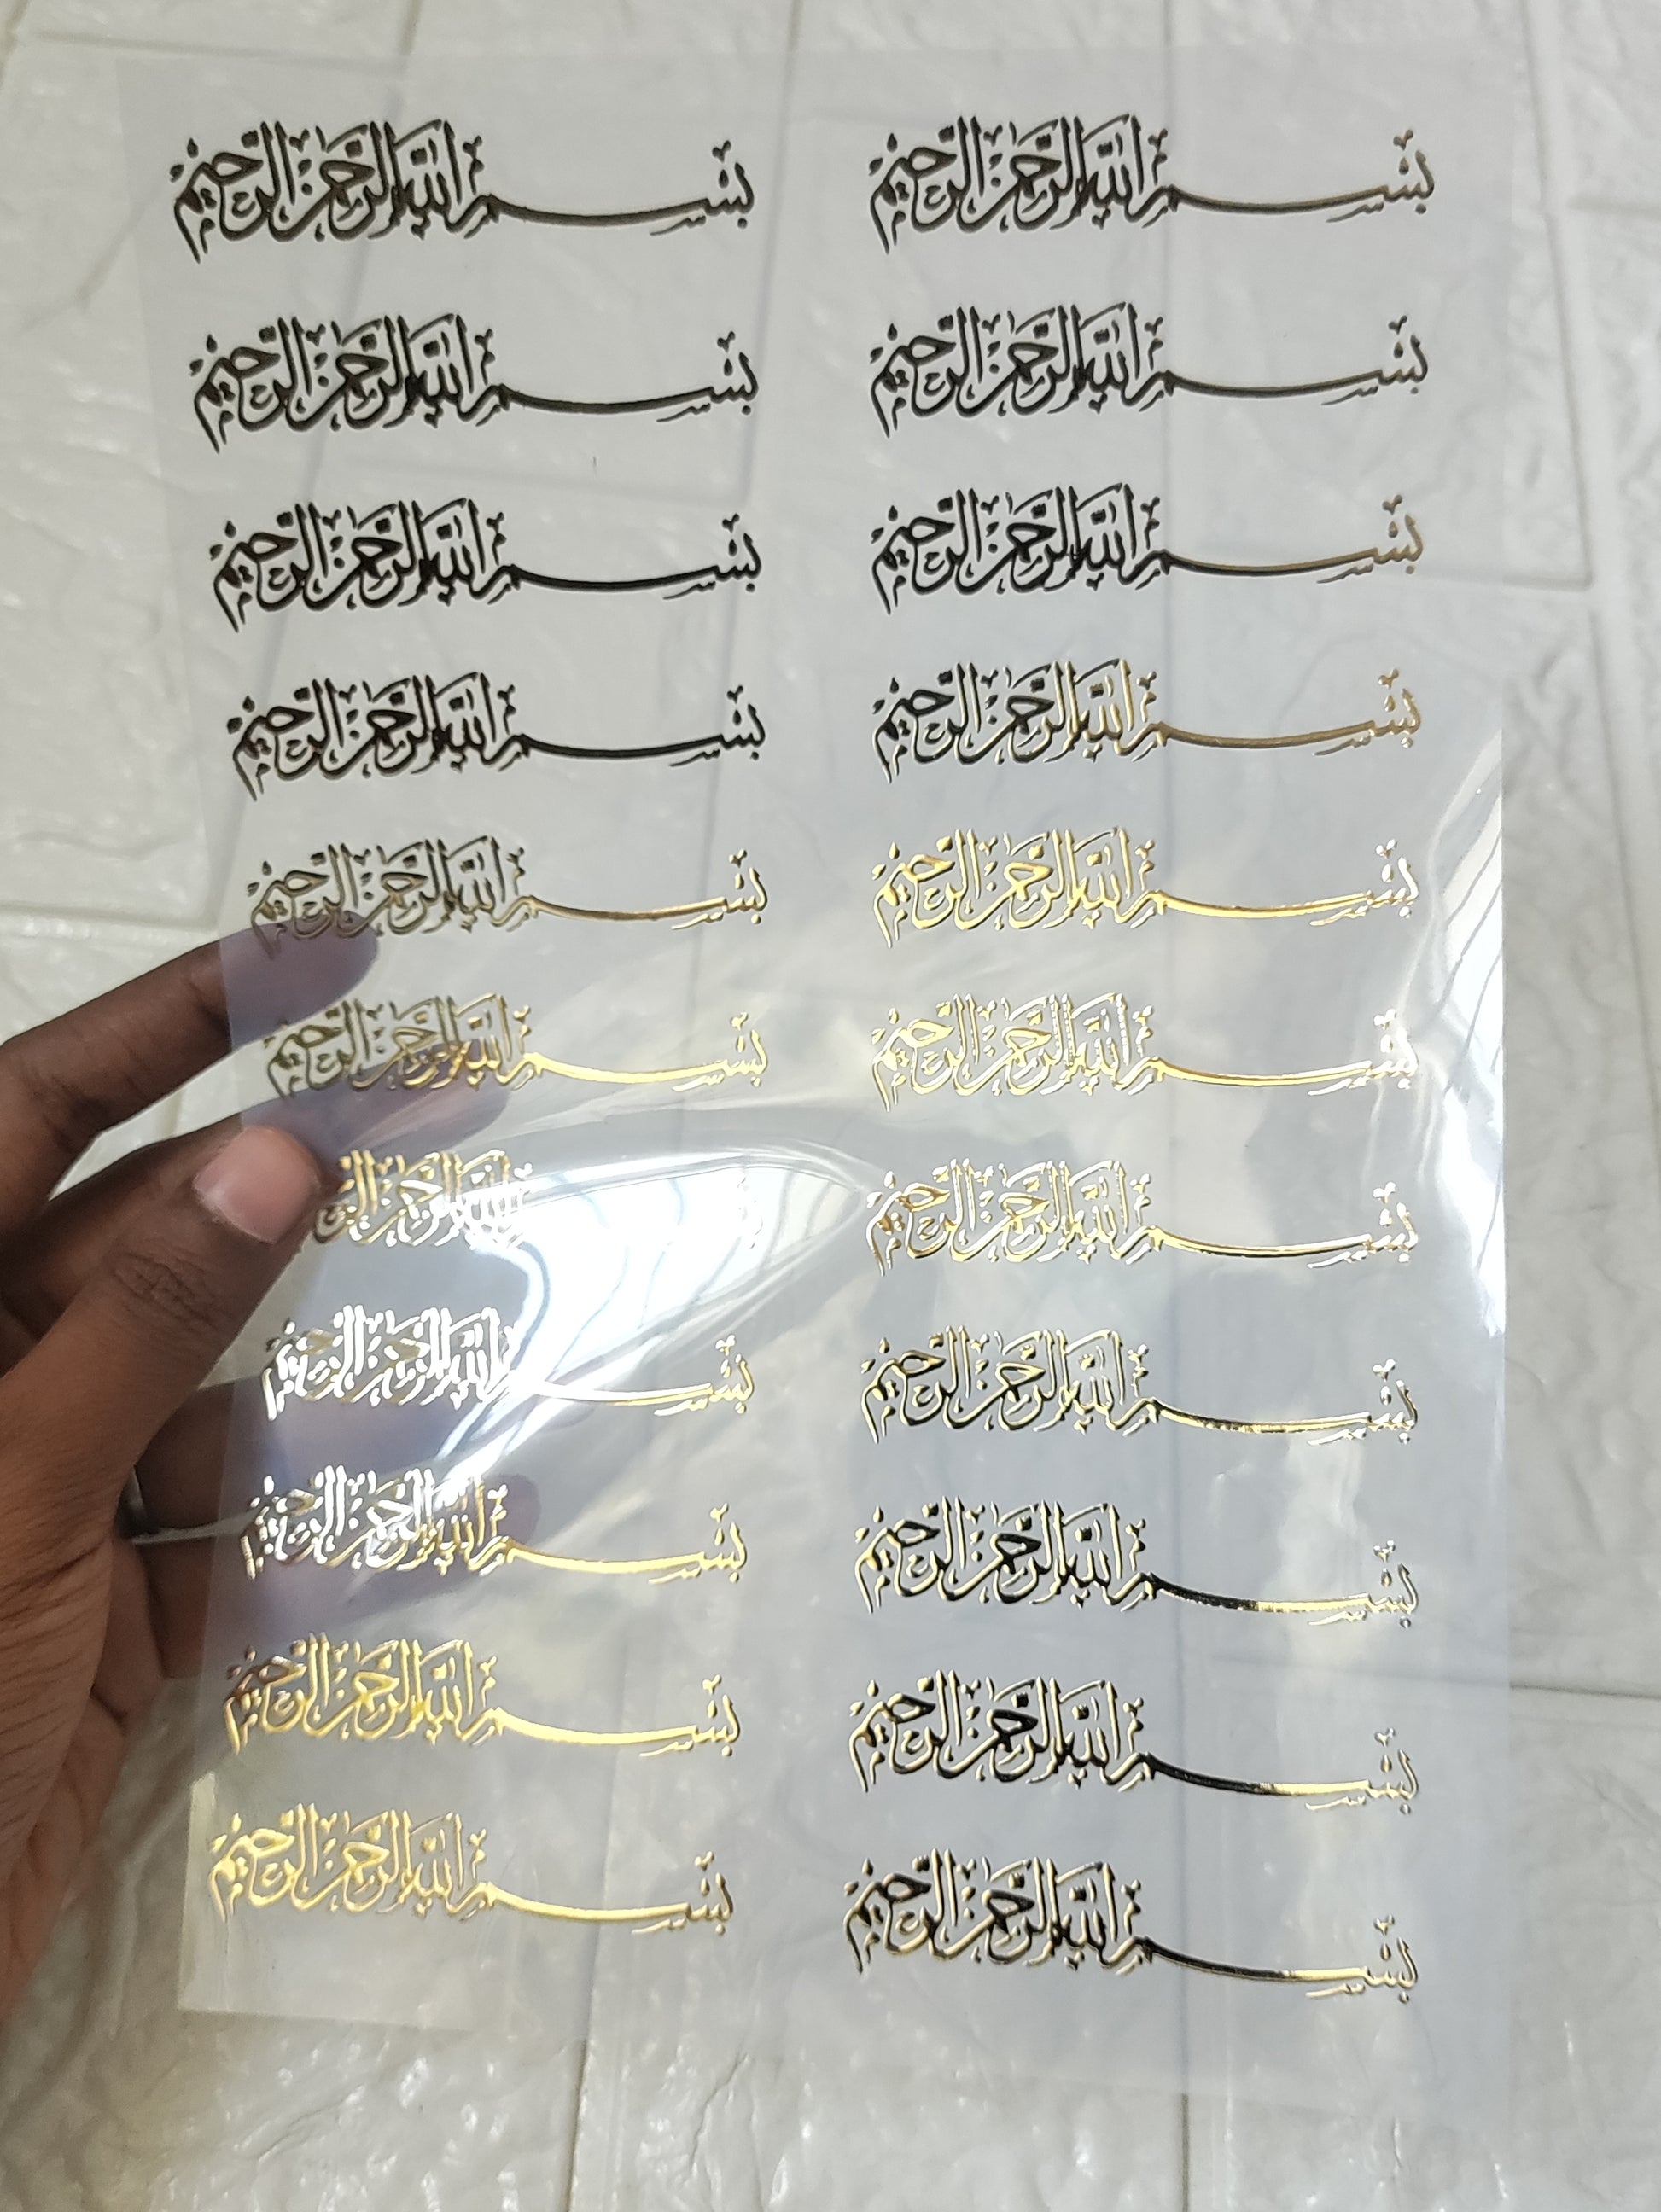 بسم الله الرحمن الرحيم
بسم الله الرحمن الرحيم
بسم الله الرحمن الرحيم
بسم الله الرحمن الرحيم
بسم الله الرحمن الرحيم
بسم الله الرحمن الرحيم
بسم الله الرحمن الرحيم
بسم الله الرحمن الرحيم
بسم الله الرحمن الرحيم
بسم الله الرحمن الرحيم
بسم الله الرحمن الرحيم
بسم الله الرحمن الرحيم
بسم الله الرحمن الرحيم
الله الرحمن
بسم الله الرحمن الرحيم
بسم الله الرحمن الرحيم
بسم الله الرحمن الرحيم
بسم الله الرحمن الرحيم
بسم الله الرحمن الرحيم
بسم الله الرحمن الرحيم
بسم الله الرحمن الرحيم
بسم الله الرحمن الرحيم